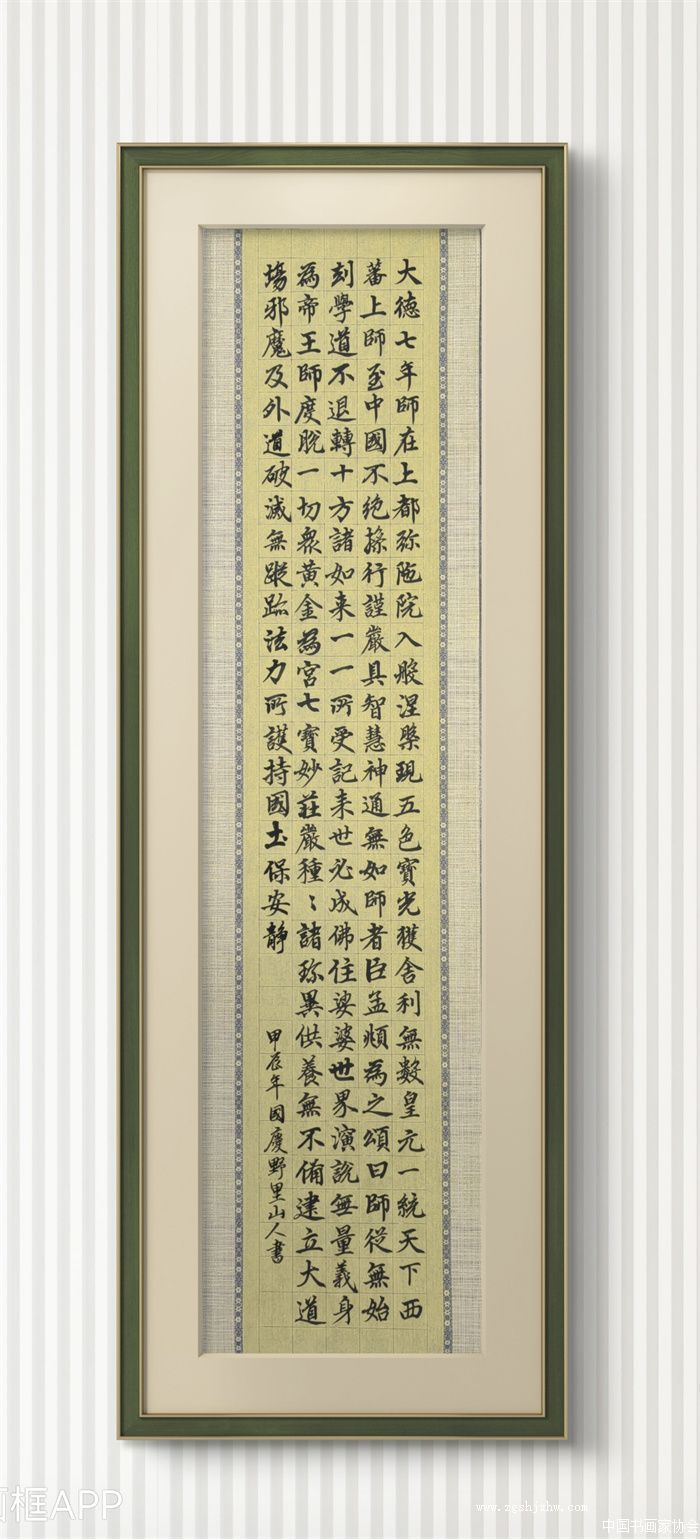 大德七年師在上都弥陁院入般涅槃現五色寶光獲舍利無數皇元一統天下西
蕃上師至中國不絶掾行謹嚴具智慧神通無如師者臣孟頫為之頌曰師從無始
刻學道不退轉十方諸如来一一所受記来世必成佛住娑婆世界演說無量義身
為帝王師度脫一切衆黃金為宮七寶妙莊嚴種〻諸珎異供養無不俻建立大道
場邪魔及外道破滅無蹤跡法力所護持國土保安靜
甲辰年國慶野里山人書
画框APP
www.zgshjzhw.com
中国书画家协会